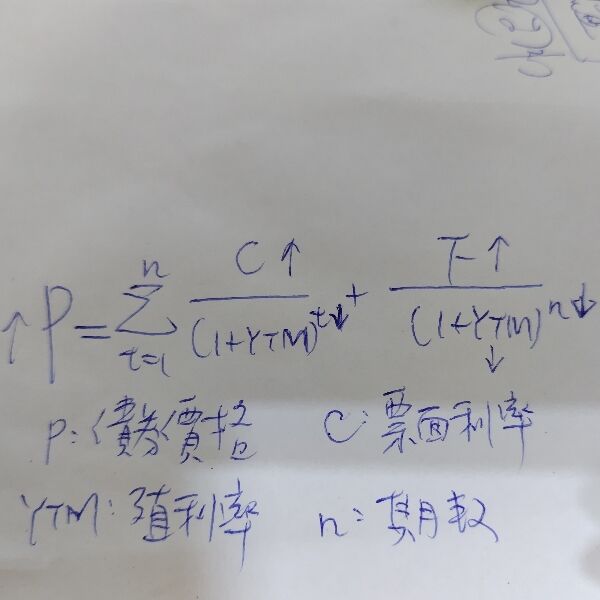 ↑P = Σ(t=1 to n) C↑/(1+YTM)^t↓ + F↑/(1+YTM↓)^n↓
P:債券價格 C:票面利率
YTM:殖利率 n:期数